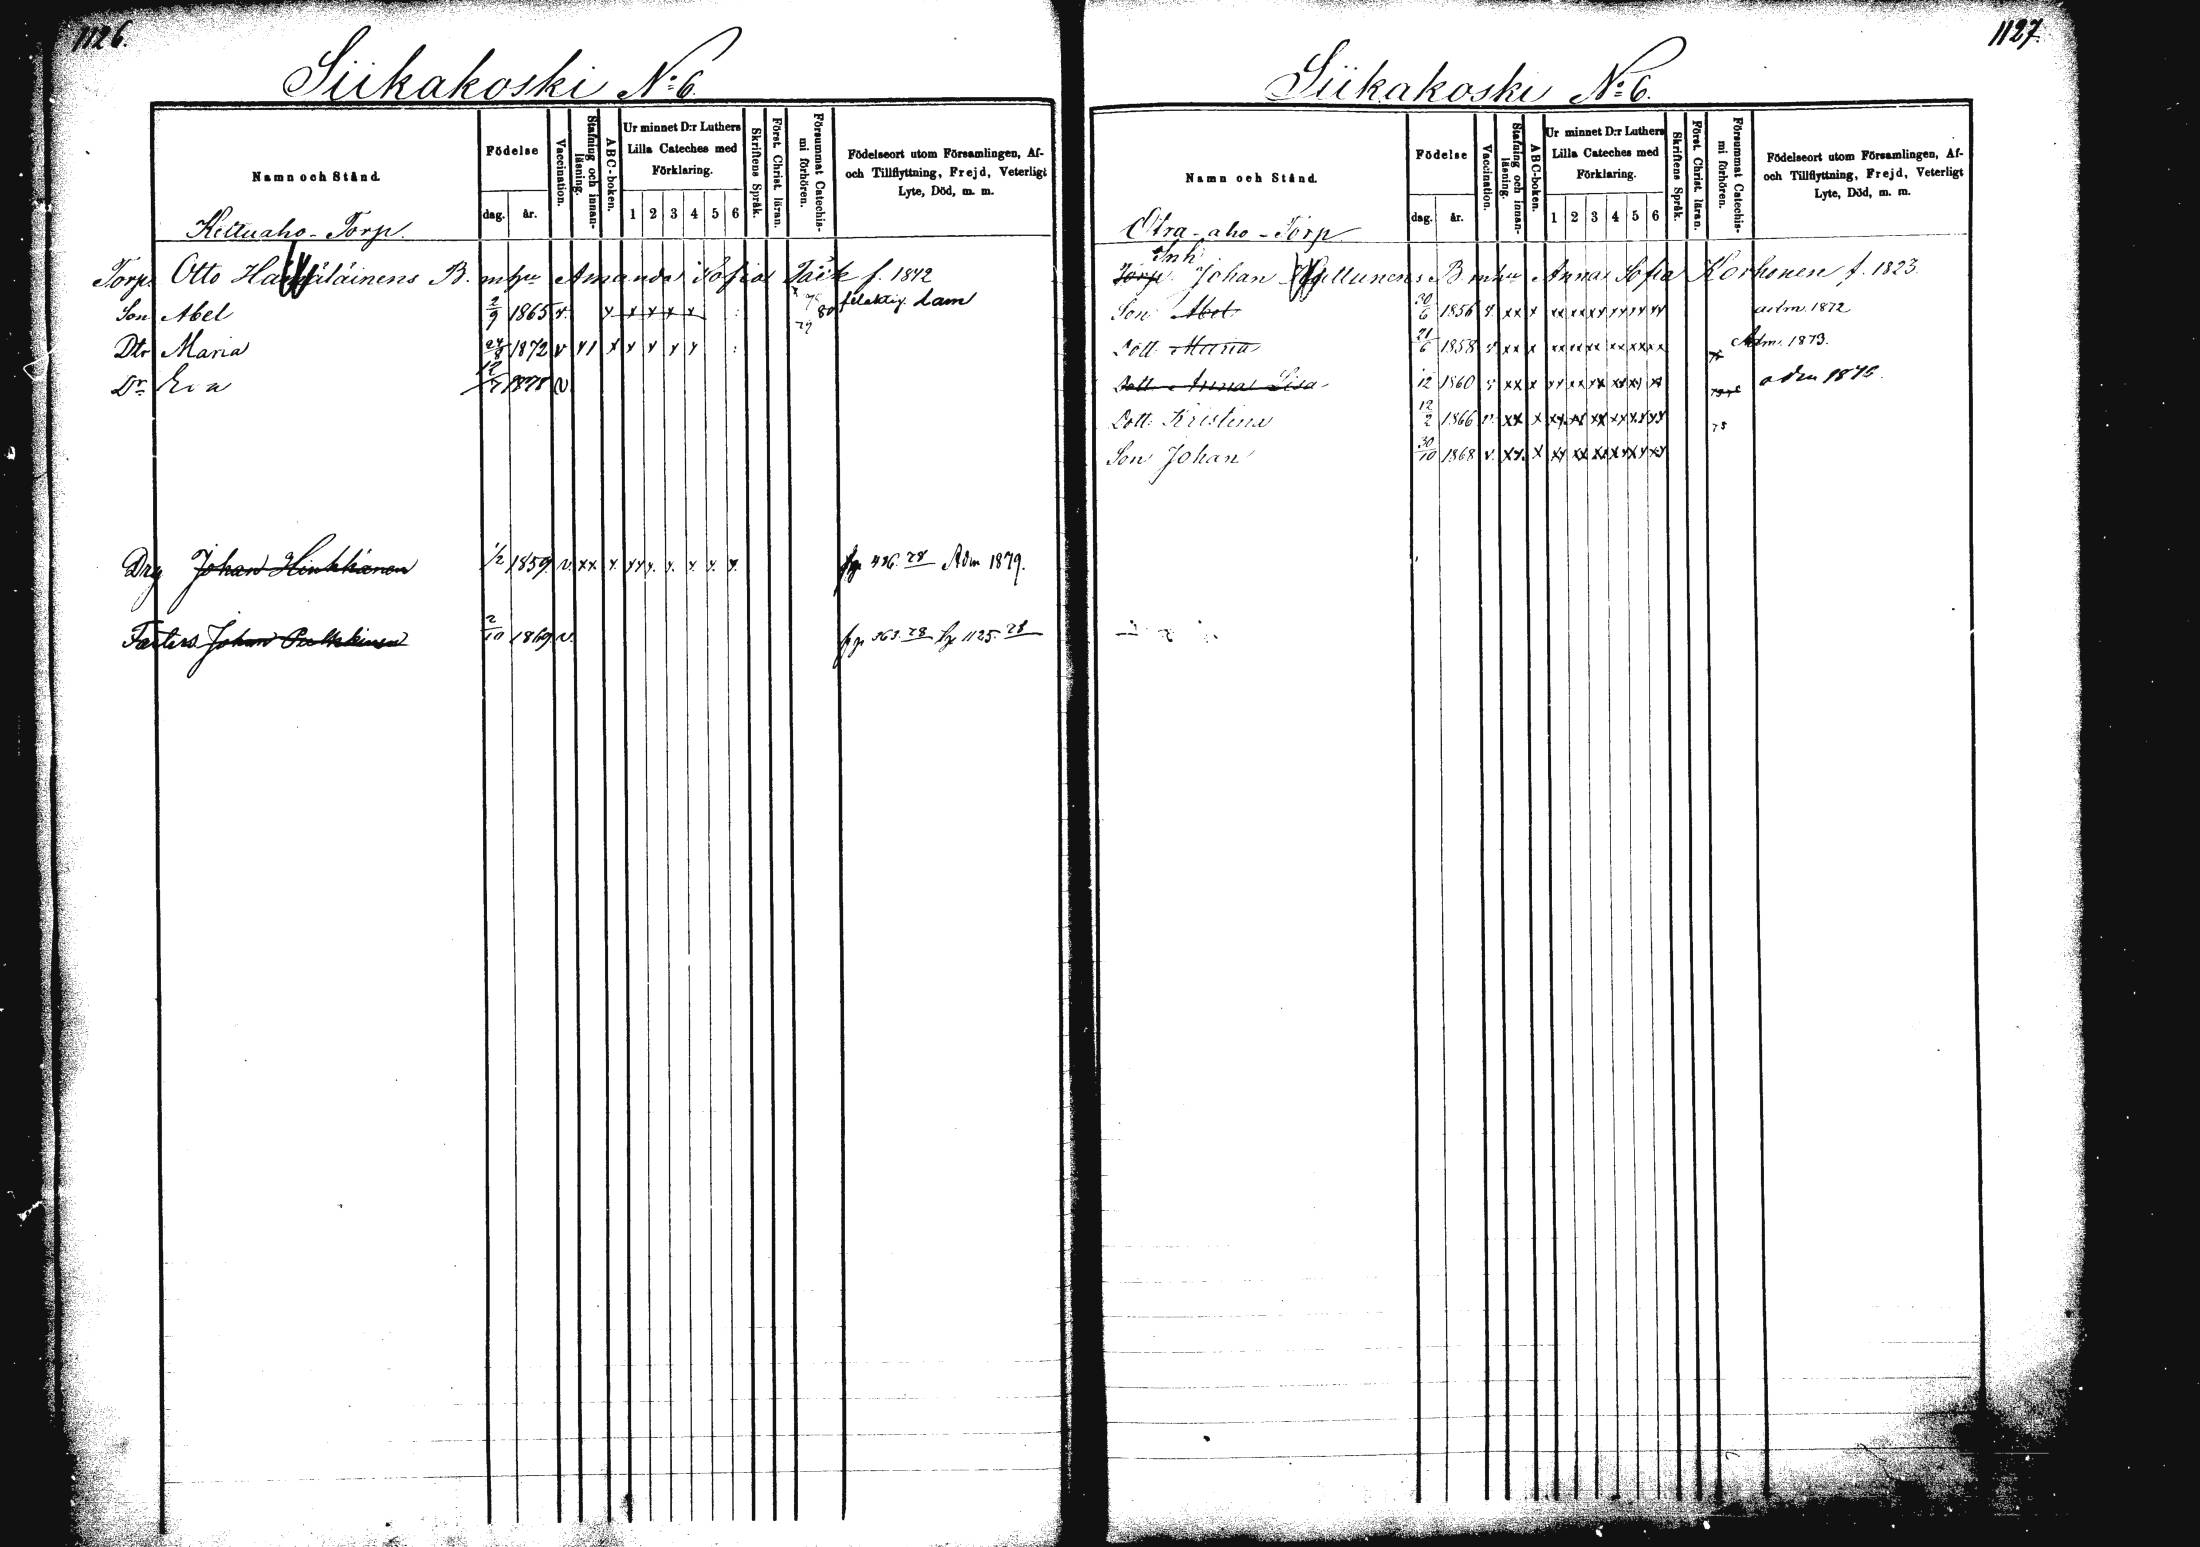 1126.
Siikakoski N:o 6.
Namn och Stånd.
Födelse
dag. år.
Vaccination.
Stafning och innan-
läsning.
ABC-boken.
Ur minnet D:r Luthers
Lilla Cateches med
Förklaring.
1 2 3 4 5 6
Skriftens Språk.
Först. Christ. läran.
Försummat Catechis-
mi förhören.
Födelseort utom Församlingen, Af-
och Tillflyttning, Frejd, Veterligt
Lyte, Död, m. m.
Keltuaho-Torp.
Torp. Otto B. m hu Amanda Sofia f. 1842
Son Abel 2/9 1865 v. x x x x x 80 79 lam
Dtr Maria 24/8 1872 v x1 x x x x x
Dr Eva 12/7 1878 v
Drg Johan Hinkkanen 1/2 1859 v. xx x. xx x. x. x. x. x. 78 Adm 1879.
Johan 2/10 1869 v. 363.78 1125.78
1127.
Siikakoski N:o 6.
Namn och Stånd.
Födelse
dag. år.
Vaccination.
Stafning och innan-
läsning.
ABC-boken.
Ur minnet D:r Luthers
Lilla Cateches med
Förklaring.
1 2 3 4 5 6
Skriftens Språk.
Först. Christ. läran.
Försummat Catechis-
mi förhören.
Födelseort utom Församlingen, Af-
och Tillflyttning, Frejd, Veterligt
Lyte, Död, m. m.
Otra-aho-Torp
Inh
Torp. Johan B m hu Anna Sofia Korhonen f. 1823.
Son Abel 30/6 1856 v xx x xx xx xx xx xx xx adm. 1872
Dott: Maria 21/6 1858 v xx x xx xx xx xx xx xx Adm. 1873.
Dott. Anna Lisa 12 1860 v xx x xx xx xx xx xx xx
Dott: Kristina 12/2 1866 v. xx x xx xx xx xx xx xx 78
Son Johan 30/10 1868 v. xx. x xx xx xx xx xx xx